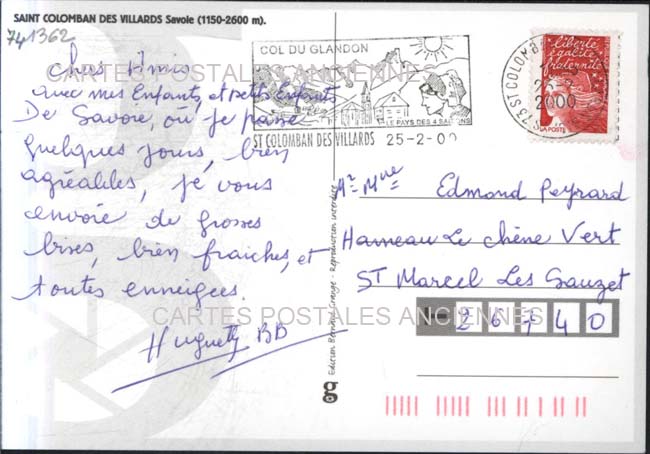 SAINT COLOMBAN DES VILLARDS Savoie (1150-2600 m).
741362
Chers Amis
avec mes Enfants, et petits Enfants
De Savoie, où je passe
quelques jours, bien
agréables, je vous
envoie de grosses
bises, bien fraiches, et
toutes enneigées.
Huguette BD
COL DU GLANDON
LE PAYS DES 4 SAISONS
ST COLOMBAN DES VILLARDS 25-2-00
73 ST COLOMB
2000
liberté
égalité
fraternité
LA POSTE
Mr Mme Edmond Peyrard
Hameau Le Chêne Vert
ST Marcel Les Sauzet
26740
Edition Bernard Grange - Reproduction interdite
g
CARTES POSTALES ANCIENNES
CARTES POSTALES ANCIENNES